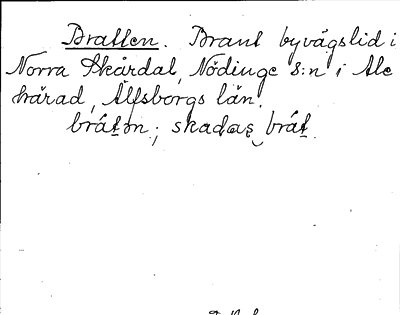 Bratten. Brant byvägslid i
Norra Skårdal, Nödinge s:n i Ale
härad, Älfsborgs län.
brátən; skadas brát